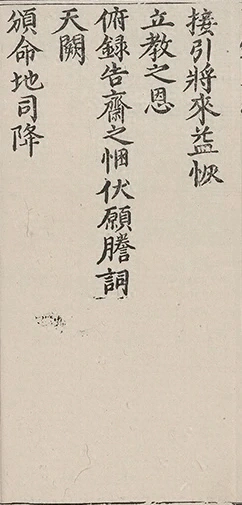 接引將來益恢
立教之恩
俯録告齋之悃伏願謄詞
天闕
頒命地司降